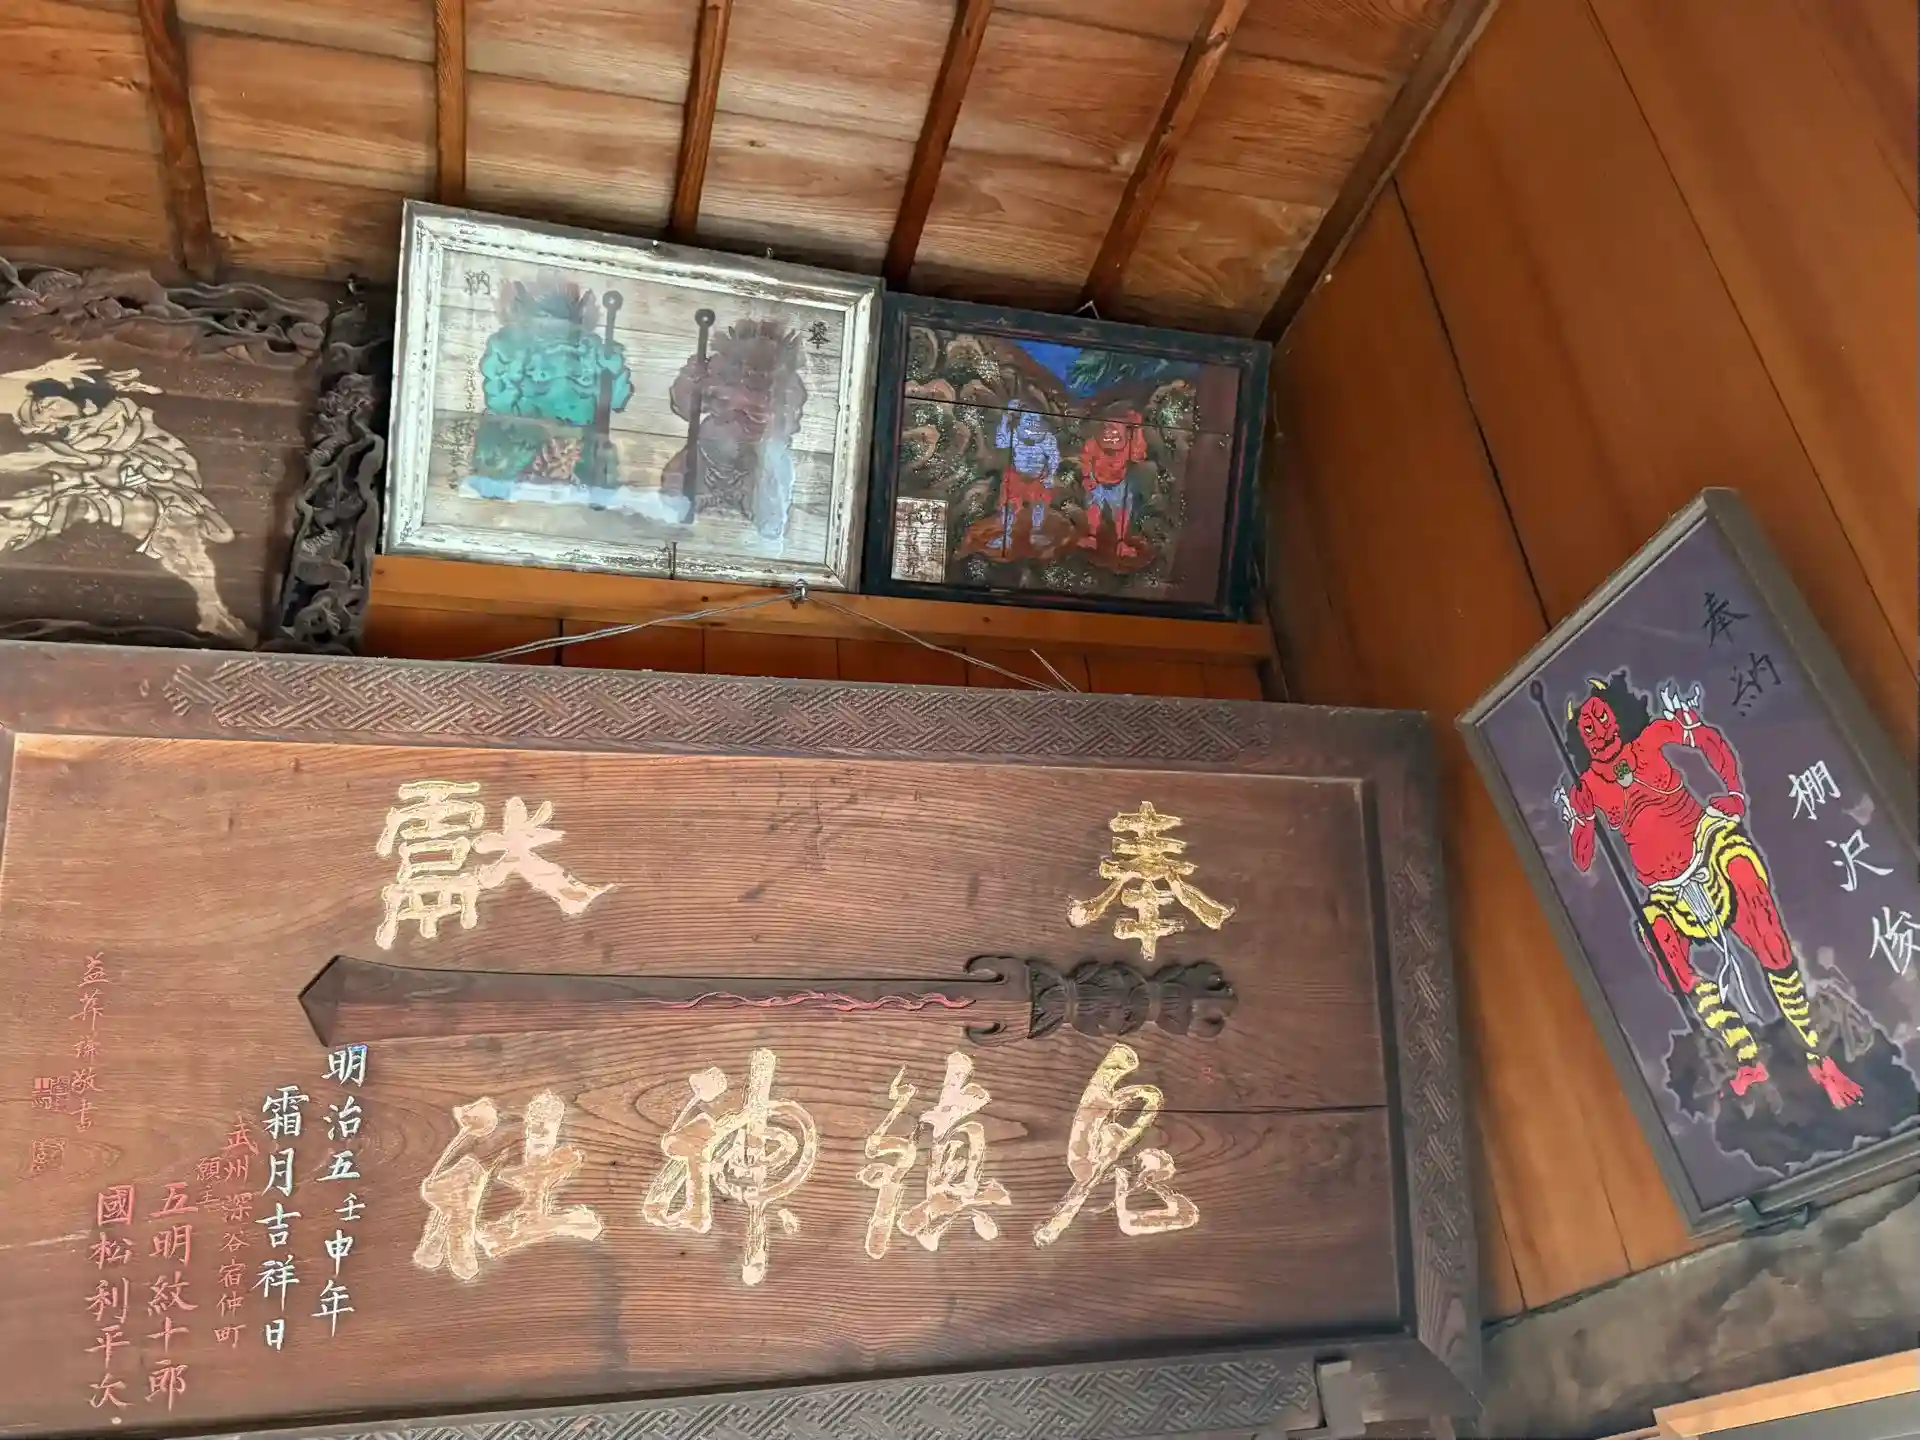 奉納
奉納
棚沢俊
奉獻
鬼鎮神社
明治五壬申年
霜月吉祥日
武州深谷宿仲町
願主
五明紋十郎
國松利平次
敬書